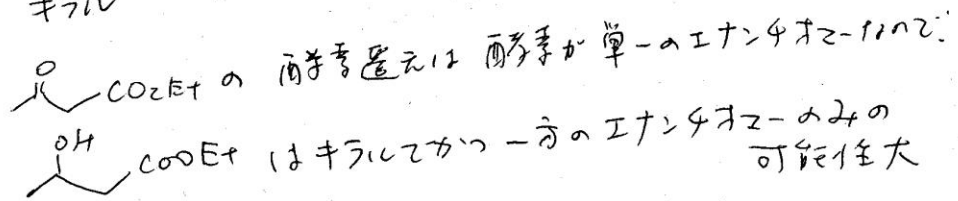 キラル
O CO2Et の 酵素還元は 酵素が単一のエナンチオマーなので、
OH COOEt はキラルでかつ一方のエナンチオマーのみの
可能性大